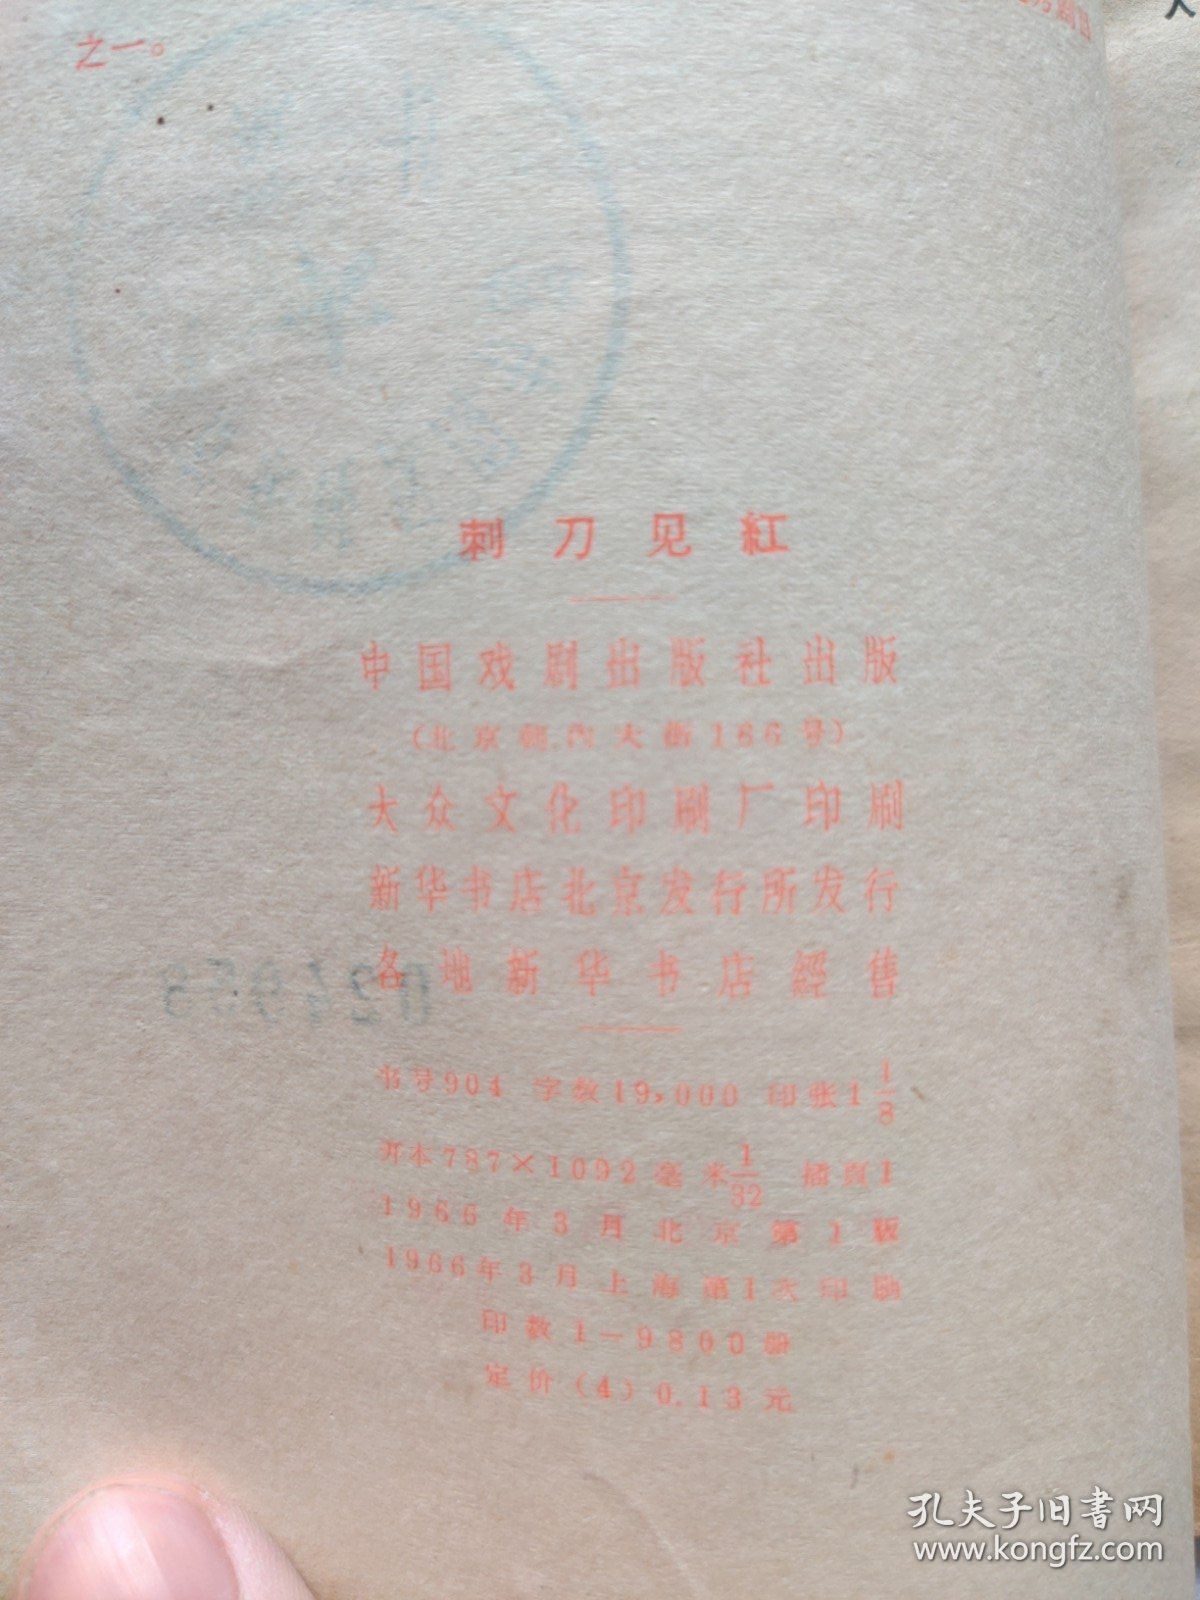 之一。
刺刀见紅
中国戏剧出版社出版
(北京朝內大街166号)
大众文化印刷厂印刷
新华书店北京发行所发行
各地新华书店經售
024953
书号904 字数19,000 印张1 1/8
开本787×1092毫米 1/32 插頁1
1966年3月北京第1版
1966年3月上海第1次印刷
印数1—9800册
定价(4)0.13元
孔夫子旧书网
www.kongfz.com